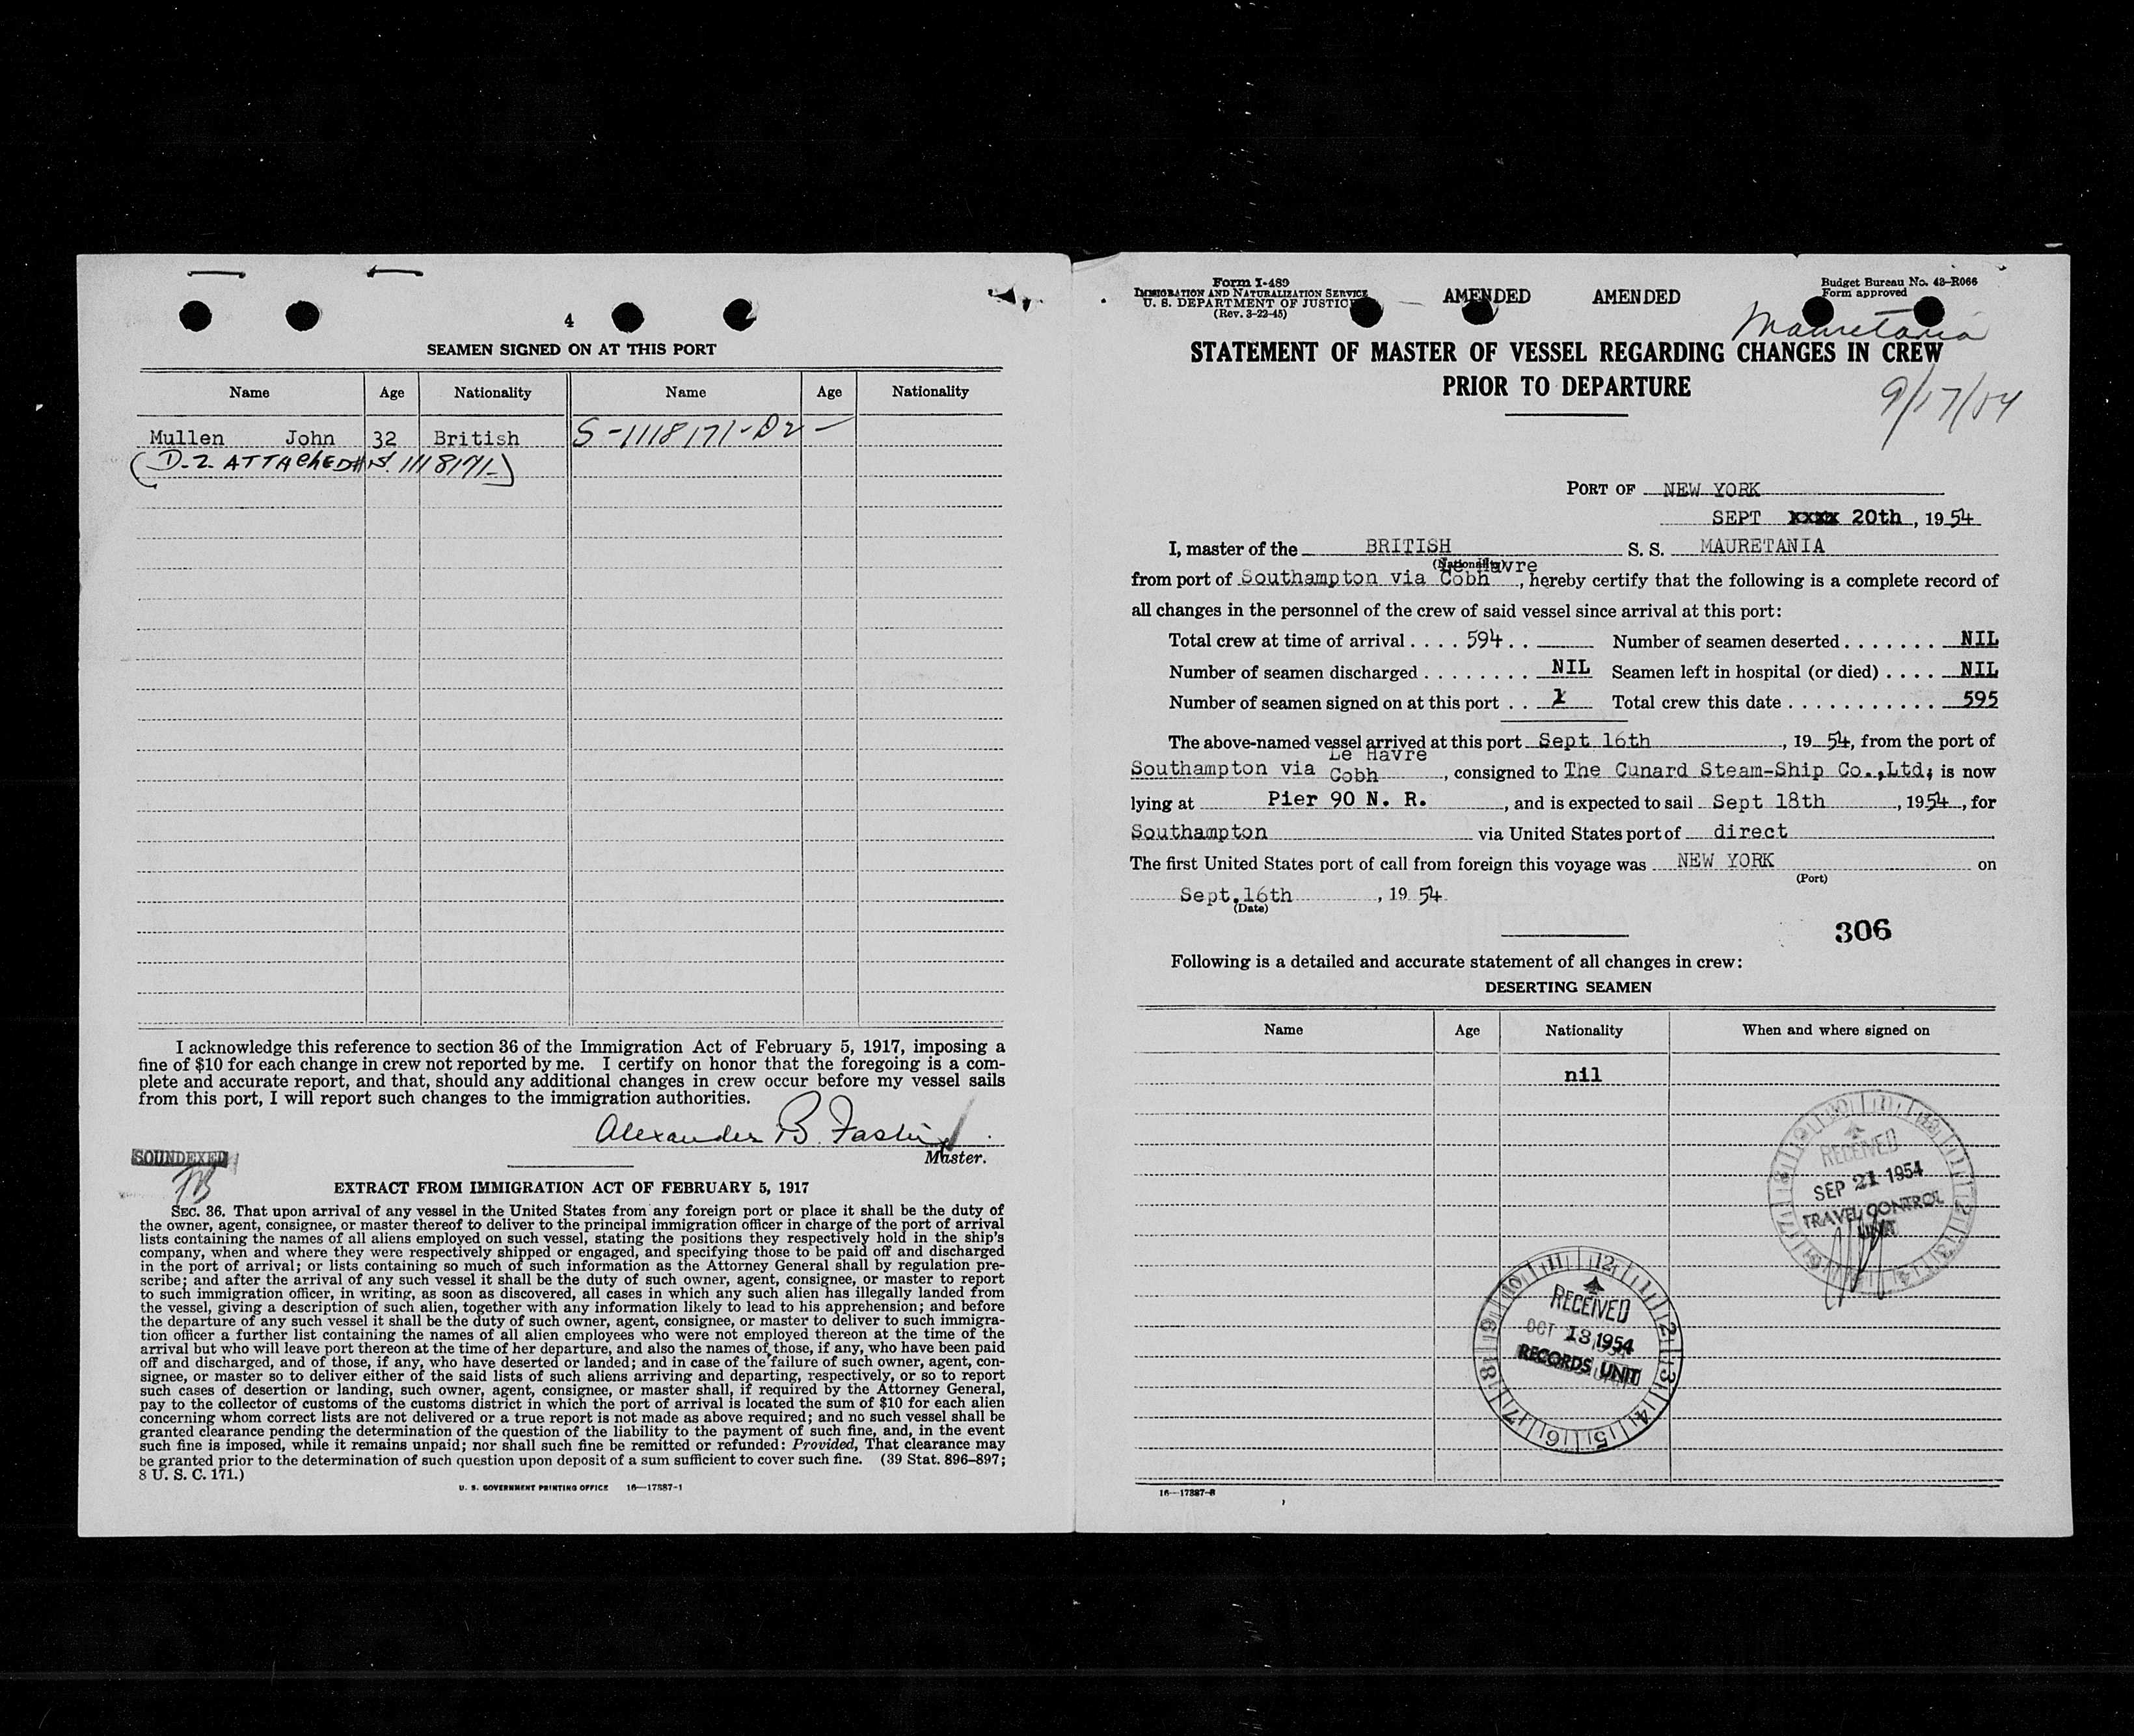 4
SEAMEN SIGNED ON AT THIS PORT
Name Age Nationality Name Age Nationality
Mullen John 32 British S-1118171-D2-
(D-2 ATTACHED 1118171-)
I acknowledge this reference to section 36 of the Immigration Act of February 5, 1917, imposing a
fine of $10 for each change in crew not reported by me. I certify on honor that the foregoing is a com-
plete and accurate report, and that, should any additional changes in crew occur before my vessel sails
from this port, I will report such changes to the immigration authorities.
Alexander B.
Master.
SOUNDEXED
EXTRACT FROM IMMIGRATION ACT OF FEBRUARY 5, 1917
SEC. 36. That upon arrival of any vessel in the United States from any foreign port or place it shall be the duty of
the owner, agent, consignee, or master thereof to deliver to the principal immigration officer in charge of the port of arrival
lists containing the names of all aliens employed on such vessel, stating the positions they respectively hold in the ship's
company, when and where they were respectively shipped or engaged, and specifying those to be paid off and discharged
in the port of arrival; or lists containing so much of such information as the Attorney General shall by regulation pre-
scribe; and after the arrival of any such vessel it shall be the duty of such owner, agent, consignee, or master to report
to such immigration officer, in writing, as soon as discovered, all cases in which any such alien has illegally landed from
the vessel, giving a description of such alien, together with any information likely to lead to his apprehension; and before
the departure of any such vessel it shall be the duty of such owner, agent, consignee, or master to deliver to such immigra-
tion officer a further list containing the names of all alien employees who were not employed thereon at the time of the
arrival but who will leave port thereon at the time of her departure, and also the names of those, if any, who have been paid
off and discharged, and of those, if any, who have deserted or landed; and in case of the failure of such owner, agent, con-
signee, or master so to deliver either of the said lists of such aliens arriving and departing, respectively, or so to report
such cases of desertion or landing, such owner, agent, consignee, or master shall, if required by the Attorney General,
pay to the collector of customs of the customs district in which the port of arrival is located the sum of $10 for each alien
concerning whom correct lists are not delivered or a true report is not made as above required; and no such vessel shall be
granted clearance pending the determination of the question of the liability to the payment of such fine, and, in the event
such fine is imposed, while it remains unpaid; nor shall such fine be remitted or refunded: Provided, That clearance may
be granted prior to the determination of such question upon deposit of a sum sufficient to cover such fine. (39 Stat. 896–897;
8 U. S. C. 171.)
U. S. GOVERNMENT PRINTING OFFICE 16—17387-1
Form I-489
IMMIGRATION AND NATURALIZATION SERVICE
U. S. DEPARTMENT OF JUSTICE
(Rev. 3-22-45)
AMENDED AMENDED
Budget Bureau No. 43–R066
Form approved
Mauretania
STATEMENT OF MASTER OF VESSEL REGARDING CHANGES IN CREW
PRIOR TO DEPARTURE
9/17/54
PORT OF NEW YORK
SEPT xxxx 20th, 1954
I, master of the BRITISH S. S. MAURETANIA
(Nationality)
Le Havre
from port of Southampton via Cobh, hereby certify that the following is a complete record of
all changes in the personnel of the crew of said vessel since arrival at this port:
Total crew at time of arrival . . . . 594 . . Number of seamen deserted . . . . . . . NIL
Number of seamen discharged . . . . . . . . NIL Seamen left in hospital (or died) . . . . NIL
Number of seamen signed on at this port . . 1 Total crew this date . . . . . . . . . . . 595
The above-named vessel arrived at this port Sept 16th, 19 54, from the port of
Le Havre
Southampton via Cobh, consigned to The Cunard Steam-Ship Co.,Ltd; is now
lying at Pier 90 N. R., and is expected to sail Sept 18th, 1954, for
Southampton via United States port of direct
The first United States port of call from foreign this voyage was NEW YORK on
(Port)
Sept.16th, 19 54
(Date)
306
Following is a detailed and accurate statement of all changes in crew:
DESERTING SEAMEN
Name Age Nationality When and where signed on
nil
RECEIVED
SEP 21 1954
TRAVEL CONTROL
UNIT
12 1 2 3 4 5 6 7 8 9 10 11
RECEIVED
OCT 13 1954
RECORDS UNIT
16—17387-8